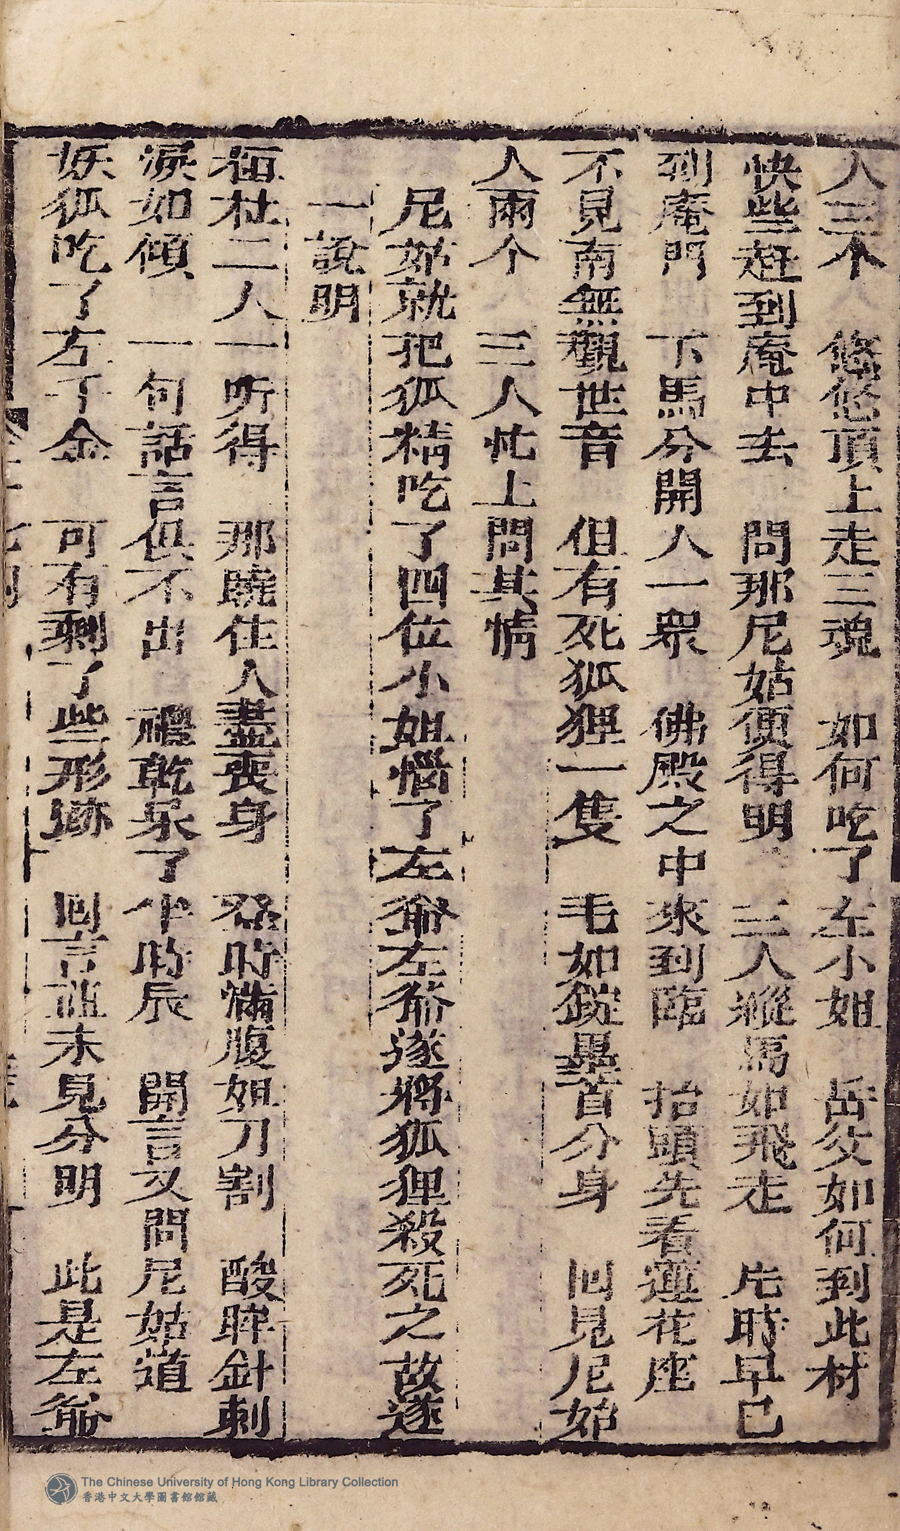 人三个　悠悠頂上走三魂　如何吃了左小姐　岳父如何到此材
快些赶到庵中去　問那尼姑便得明　三人縱馬如飛走　片時早已
到庵門　下馬分開人一衆　佛殿之中來到臨　抬頭先看蓮花座
不見南無觀世音　但有死狐狸一隻　毛如 異首分身　回見尼姑
人兩个　三人忙上問其情
尼姑就把狐精吃了四位小姐惱了左爺左爺遂將狐狸殺死之故遂
一說明
桓杜二人一听得　那曉住人盡喪身　登時滿腹如刀割　酸 針刺
淚如傾　一句話言俱不出　 乾呆了半時辰　開言又問尼姑道
妖狐吃了左千金　可有剩了些形跡　回言 未見分明　此是左爺
The Chinese University of Hong Kong Library Collection
香港中文大學圖書館館藏